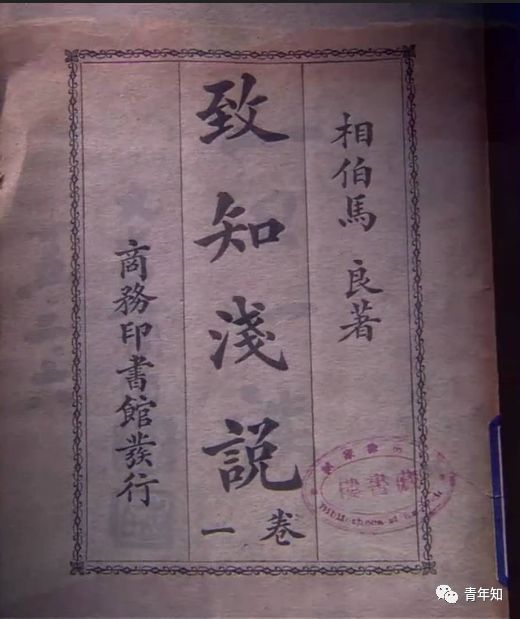 相伯馬 良著
致知淺說
卷一
商務印書館發行
藏書樓
青年知